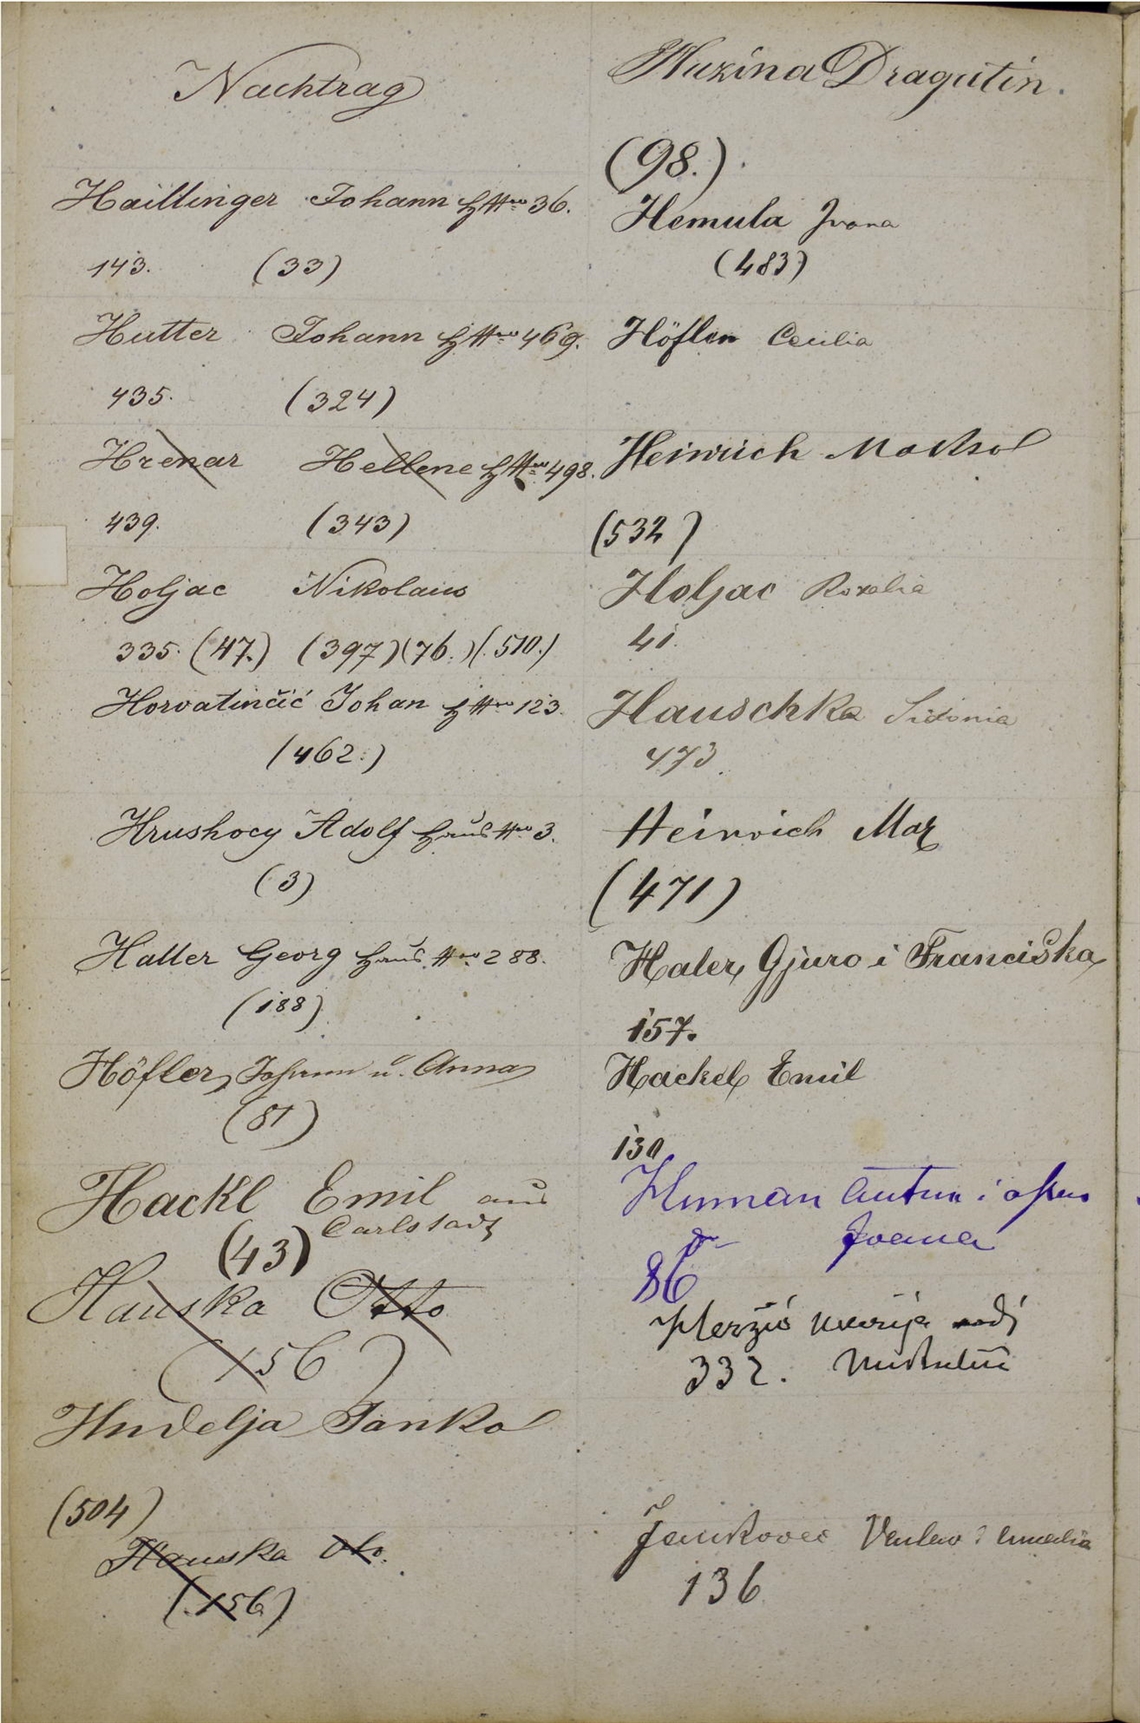 Nachtrag
Haillinger Johann H Nro 36.
143. (33)
Hutter Johann H Nro 469.
435. (324)
Hrenar Hellene H Nro 498.
439. (343)
Holjac Nikolaus
335. (47.) (397) (76.) (510.)
Horvatinčić Johan H Nro 123.
(462.)
Hrushocy Adolf Haus Nro 3.
(3)
Haller Georg Haus Nro 288.
(188)
Höfler Johann u. Anna
(81)
Hackl Emil aus
Carlstadt
(43)
Hauska Otto
(156)
Hudelja Janko
(504)
Hauska Oto.
(156)
Huzina Dragutin.
(98.)
Hemula Ivana
(483)
Höfler Cecilia
Heinrich
(532)
Holjac Rozalia
41.
Hauschka Sidonia
473.
Heinrich Max
(471)
Haler Gjuro i Franciška
157.
Hackel Emil
130
Human Antun i
Ivana
86
Marija
332.
136